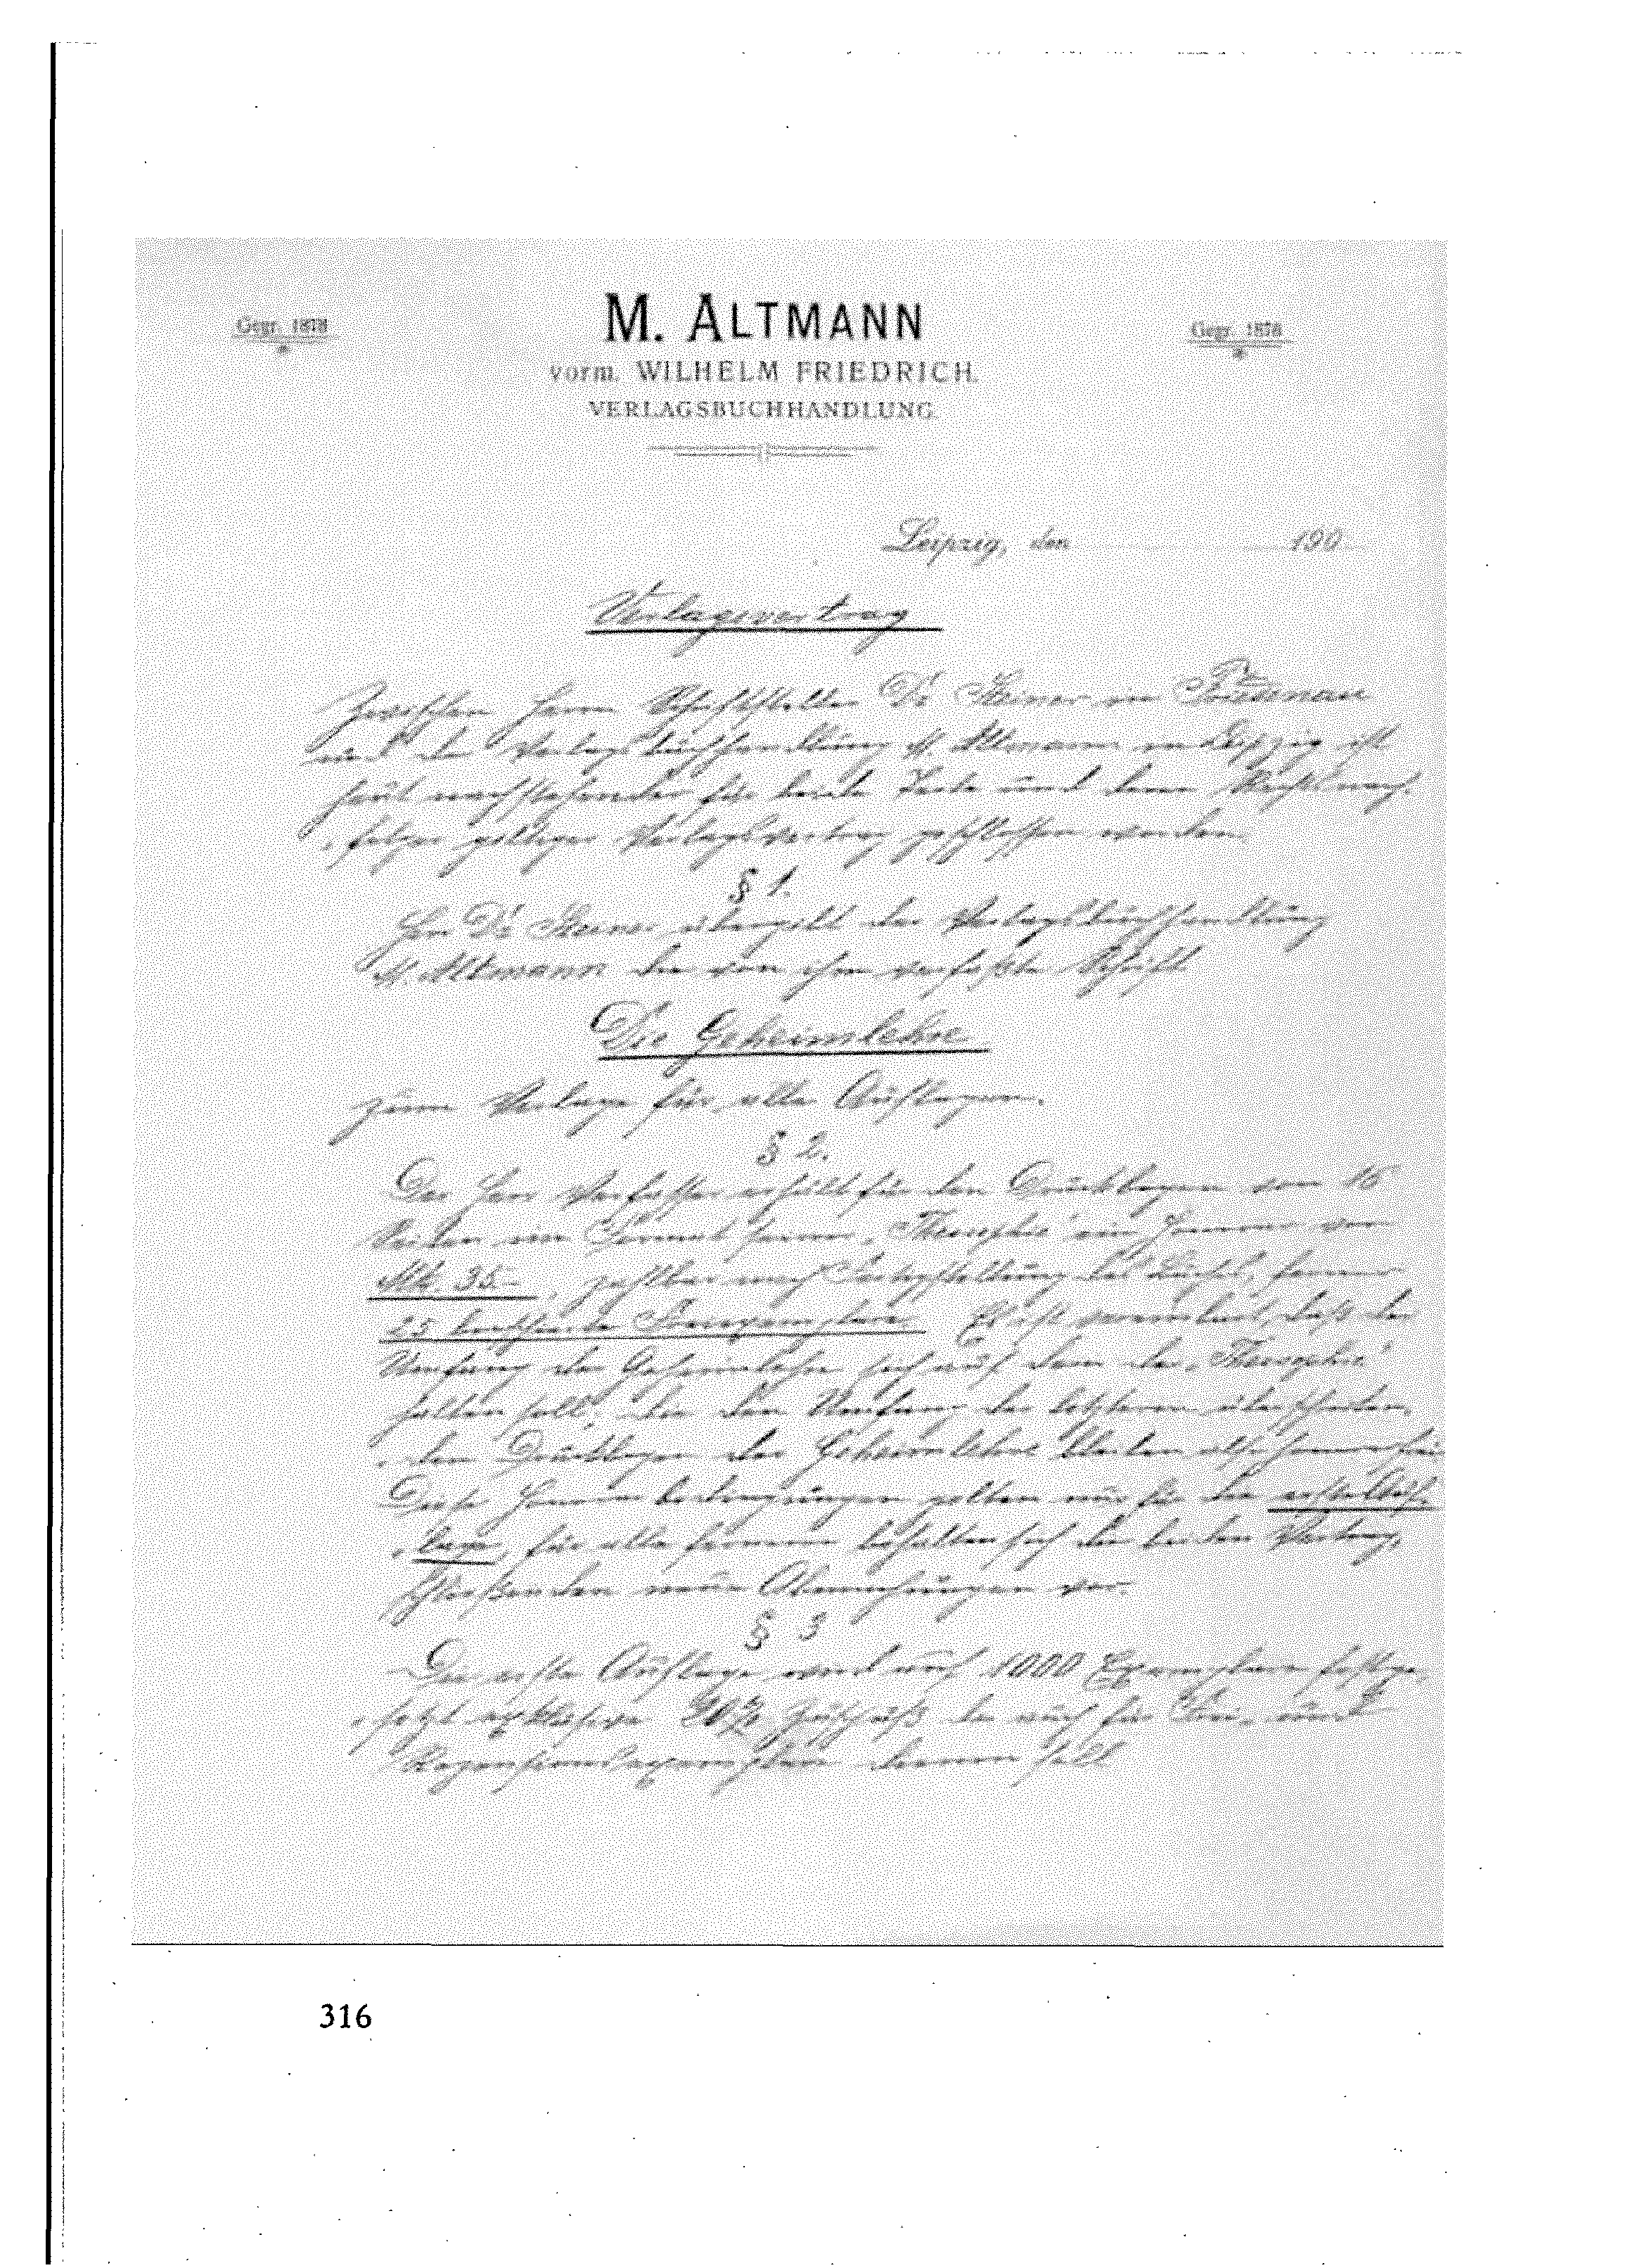 Gegr. 1878
M. ALTMANN
Gegr. 1878
vorm. WILHELM FRIEDRICH.
VERLAGSBUCHHANDLUNG.
Leipzig, den 190
Verlagsvertrag
Zwischen Herrn Schriftsteller Dr. Steiner in Friedenau
und der Verlagsbuchhandlung M. Altmann in Leipzig ist
heut nachstehender für beide Teile und deren Rechtsnach-
folger gültiger Verlagsvertrag geschlossen worden.
§ 1.
Herr Dr. Steiner übergibt der Verlagsbuchhandlung
M. Altmann die von ihm verfaßte Schrift
Die Geheimlehre
zum Verlage für alle Auflagen.
§ 2.
Der Herr Verfasser erhält für den Druckbogen von 16
Seiten im Format seiner „Theosophie" ein Honorar von
Mk. 35.–, zahlbar nach Fertigstellung des Buches, ferner
25 broschierte Freiexemplare. Es ist vereinbart, daß der
Umfang der Geheimlehre sich auf dem der „Theosophie"
halten soll, die den Umfang der letzteren überschreiten-
den Druckbogen der Geheimlehre bleiben also honorarfrei
Diese Honorarbedingungen gelten nur für die erste Auf-
lage, für alle ferneren behalten sich die beiden Vertrag-
schließenden neue Abmachungen vor.
§ 3
Die erste Auflage wird auf 1000 Exemplare festge-
setzt exklusive Zuschuß der auch für Frei- und
Rezensionsexemplare dienen soll
316